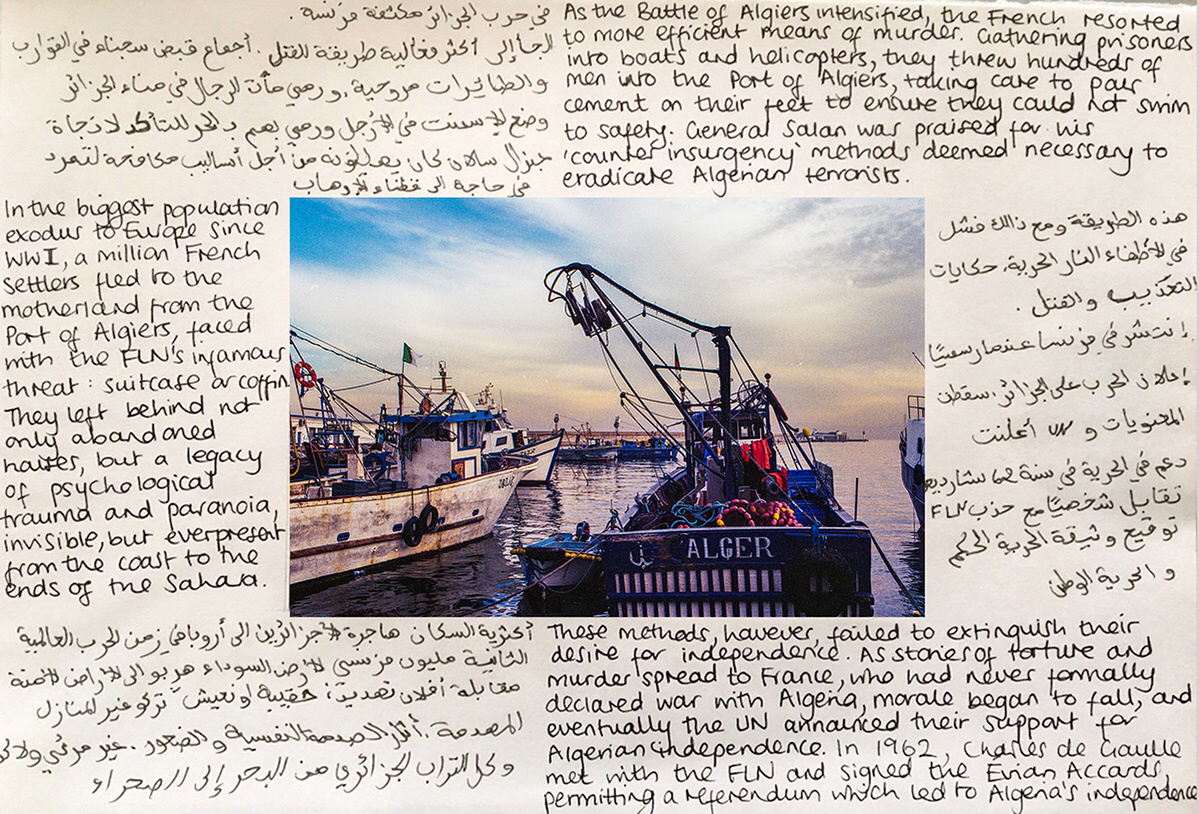 في حرب الجزائر مكثفة فرنسة.
الجأ إلى أكثر فعالية طريقة للقتل. أجماع قبض سجناء في القوارب
والطائرات مروحية, ورمي مأت الرجال في ميناء الجزائر
وضع الإسمنت في الأرجل ورمي بهم بالبحر للتأكد لا نجاة
جنرال سالان كان من أجل أساليب مكافحة لتمرد
في حاجة الى
As the Battle of Algiers intensified, the French resorted
to more efficient means of murder. Gathering prisoners
into boats and helicopters, they threw hundreds of
men into the Port of Algiers, taking care to pair
cement on their feet to ensure they could not swim
to safety. General Salan was praised for his
'counter insurgency' methods deemed necessary to
eradicate Algerian terrorists.
In the biggest population
exodus to Europe since
WWI, a million French
settlers fled to the
motherland from the
Port of Algiers, faced
with the FLN's infamous
threat: suitcase or coffin
They left behind not
only abandoned
houses, but a legacy
of psychological
trauma and paranoia,
invisible, but everpresent
from the coast to the
ends of the Sahara.
ALGER
هذه الطريقة ومع ذالك فشل
في الأطفاء النار الحربة, حكايات
التعذيب والقتل.
إنتشر في فرنسا عندما رسميًا
إعلان الحرب على الجزائر, سقطن
المعنويات و UN أعلنت
دعم في الحرية في سنة
تقابل شخصيًا مع حزب FLN
توقيع وثيقة الحرية الحكم
و الحرية الوطن
أكثرية السكان هاجرة الى أروبا في زمن الحرب العالمية
الثانية مليون فرنسي الأرض السوداء هربو الى الأراض الأمنة
مقابلة تهديد: حقيبة او نعيش" تركو غير المنازل
المهدمة. الصدمة النفسية و الصعور. غير مرئي
وكل التراب الجزائري من البحر إلى الصحراء
These methods, however, failed to extinguish their
desire for independence. As stories of torture and
murder spread to France, who had never formally
declared war with Algeria, morale began to fall, and
eventually the UN announced their support for
Algerian independence. In 1962, Charles de Gaulle
met with the FLN and signed the Evian Accards,
permitting a referendum which led to Algeria's independence